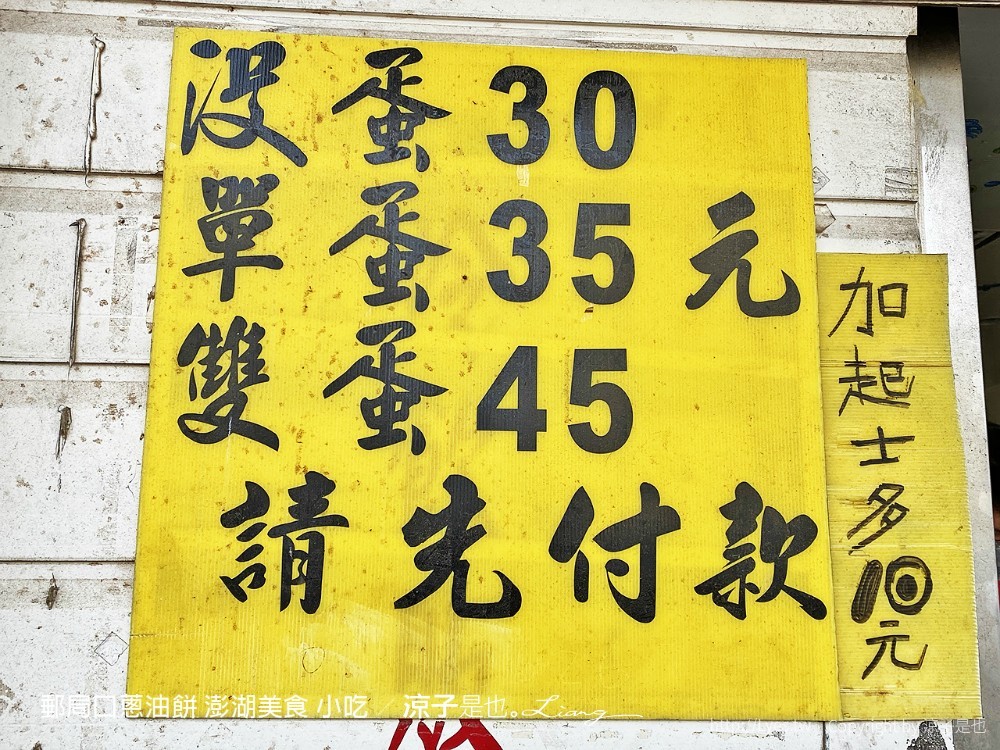 沒蛋30
單蛋35元
雙蛋45
請先付款
加起士多10元
郵局口蔥油餅 澎湖美食 小吃 / 涼子是也。Liang